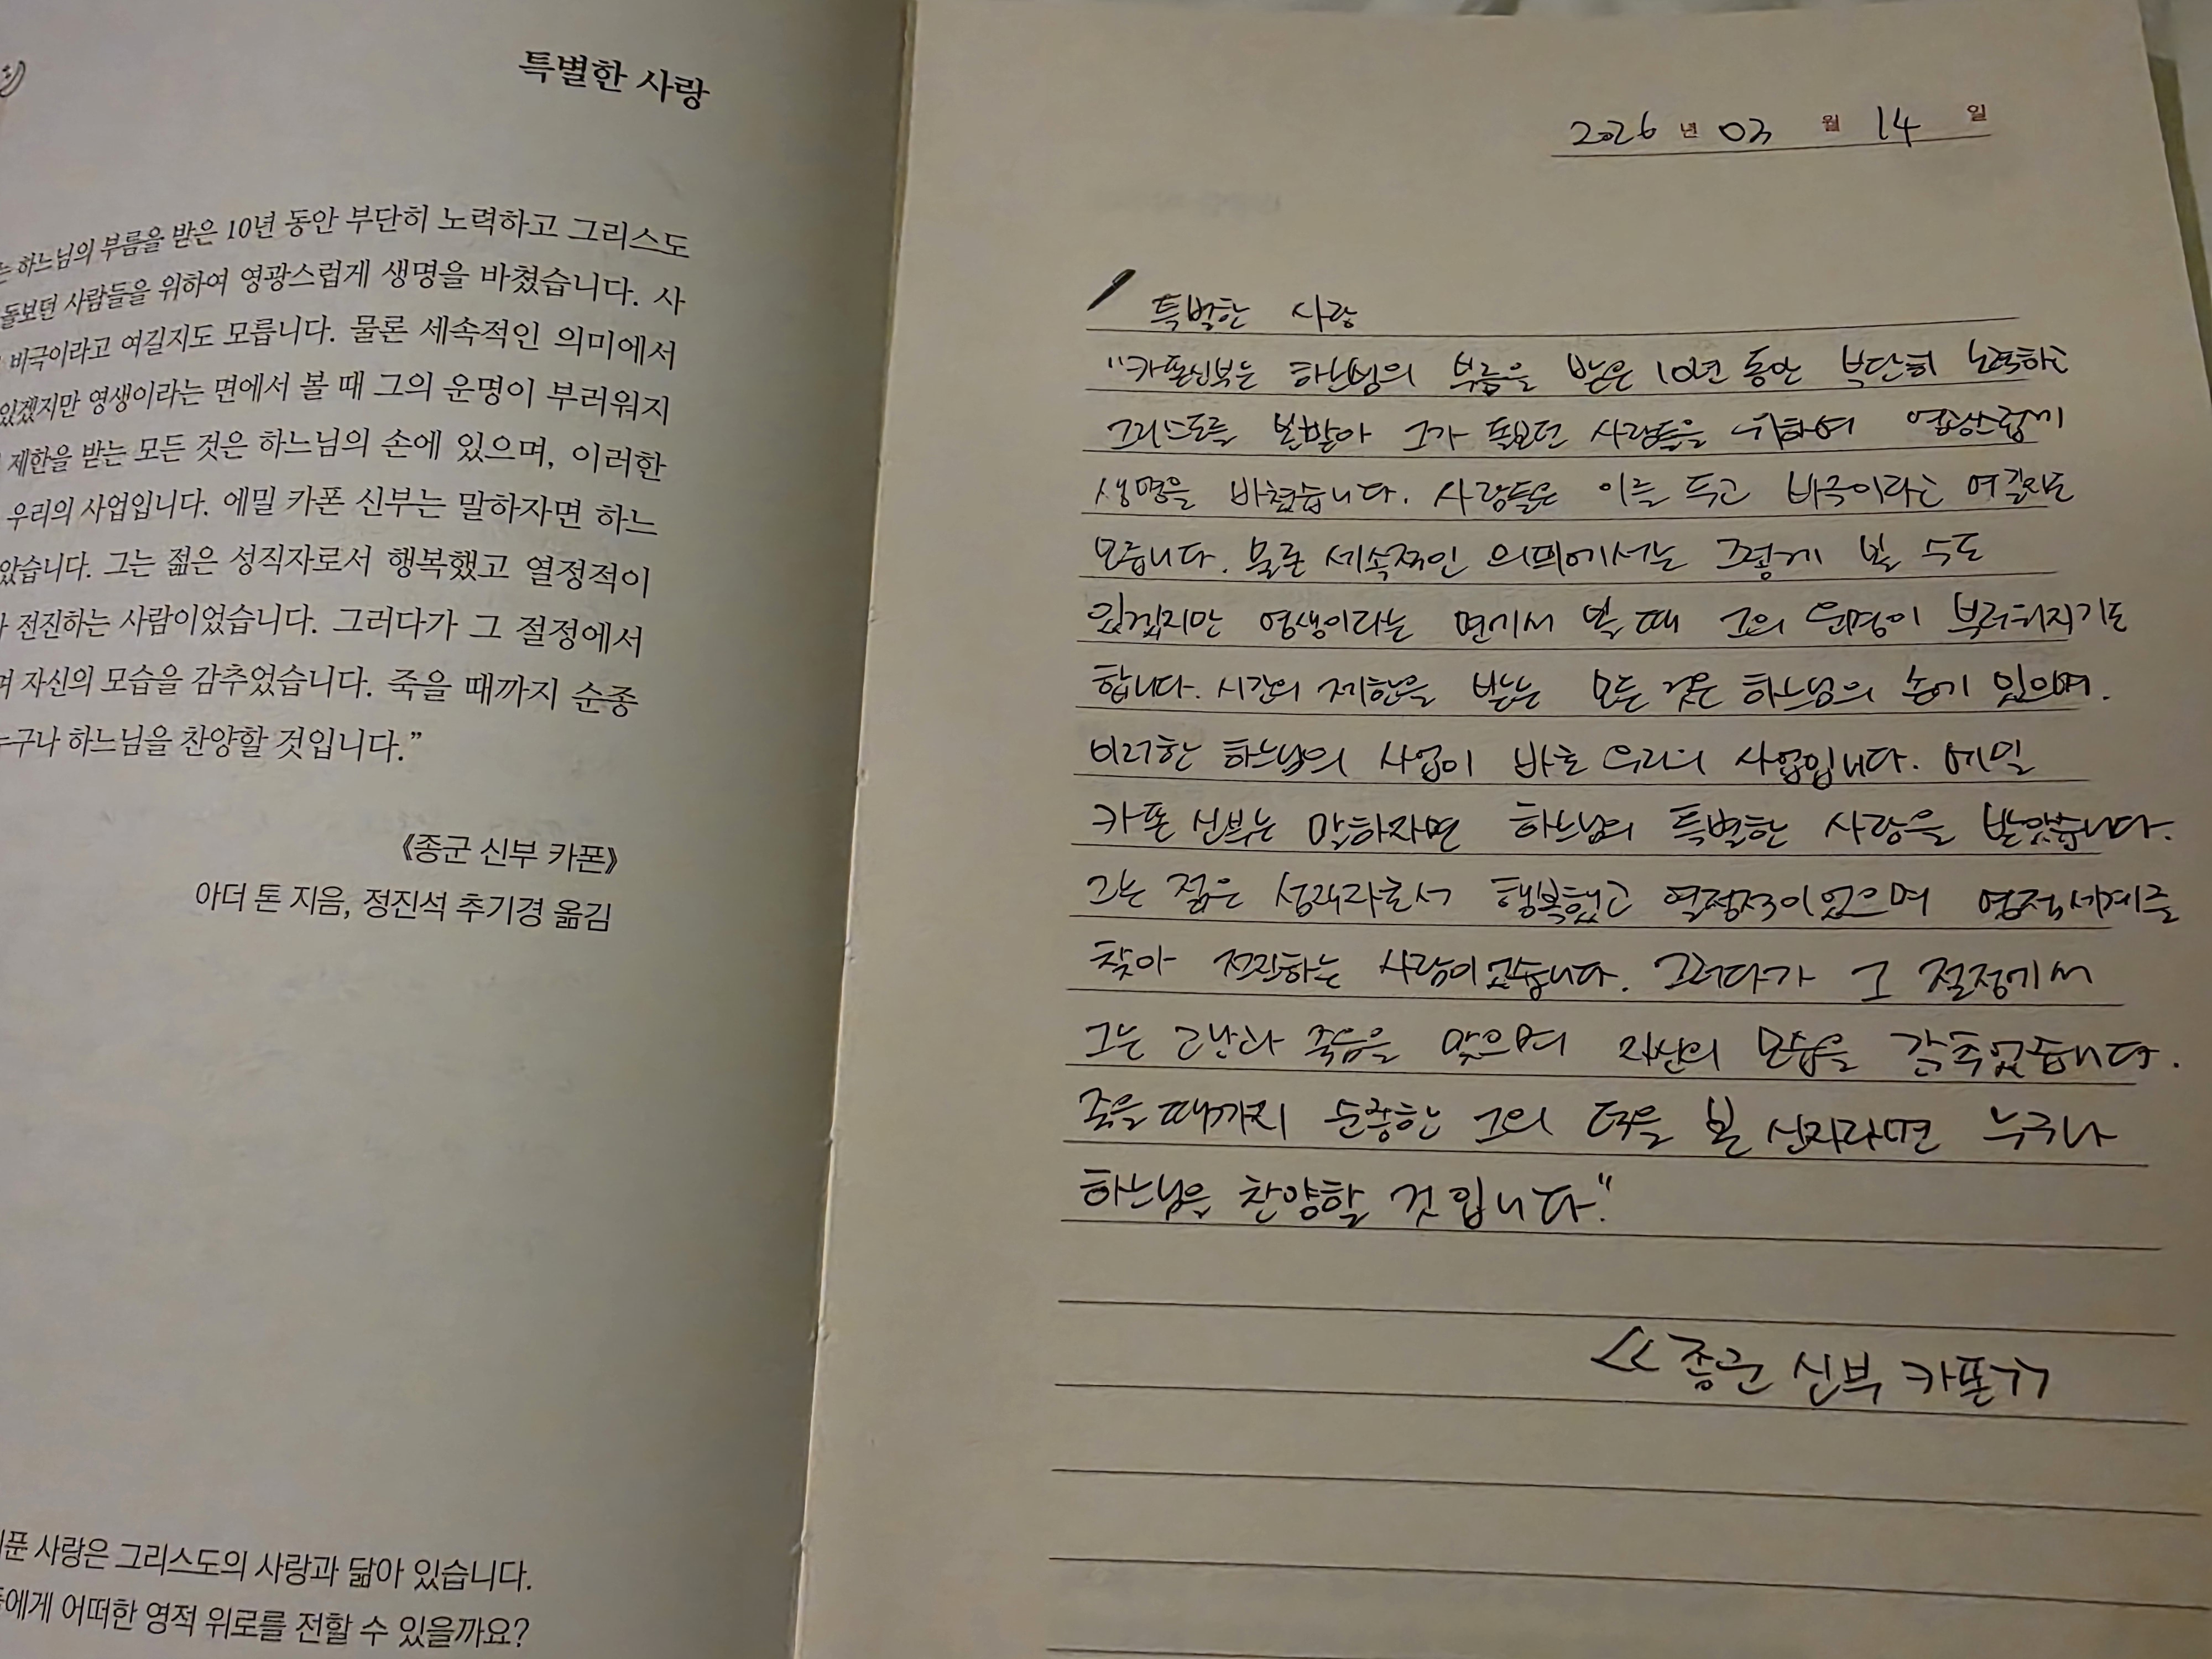 특별한 사랑
하느님의 부름을 받은 10년 동안 부단히 노력하고 그리스도
돌보던 사람들을 위하여 영광스럽게 생명을 바쳤습니다. 사
비극이라고 여길지도 모릅니다. 물론 세속적인 의미에서
있겠지만 영생이라는 면에서 볼 때 그의 운명이 부러워지
제한을 받는 모든 것은 하느님의 손에 있으며, 이러한
우리의 사업입니다. 에밀 카폰 신부는 말하자면 하느
았습니다. 그는 젊은 성직자로서 행복했고 열정적이
전진하는 사람이었습니다. 그러다가 그 절정에서
며 자신의 모습을 감추었습니다. 죽을 때까지 순종
누구나 하느님을 찬양할 것입니다.”
《종군 신부 카폰》
아더 톤 지음, 정진석 추기경 옮김
푼 사랑은 그리스도의 사랑과 닮아 있습니다.
에게 어떠한 영적 위로를 전할 수 있을까요?
2026 년 03 월 14 일
특별한 사랑
"카폰신부는 하느님의 부름을 받은 10년 동안 부단히 노력하고
그리스도를 본받아 그가 돌보던 사람들을 위하여 영광스럽게
생명을 바쳤습니다. 사람들은 이를 두고 비극이라고 여길지도
모릅니다. 물론 세속적인 의미에서는 그렇게 볼 수도
있겠지만 영생이라는 면에서 볼 때 그의 운명이 부러워지기도
합니다. 시간의 제한을 받는 모든 것은 하느님의 손에 있으며,
이러한 하느님의 사업이 바로 우리의 사업입니다. 에밀
카폰 신부는 말하자면 하느님의 특별한 사랑을 받았습니다.
그는 젊은 성직자로서 행복했고 열정적이었으며 영적 세계를
찾아 전진하는 사람이었습니다. 그러다가 그 절정에서
그는 고난과 죽음을 맞으며 자신의 모습을 감추었습니다.
죽을 때까지 순종한 그의 덕을 본 신자라면 누구나
하느님을 찬양할 것입니다."
<<종군 신부 카폰>>